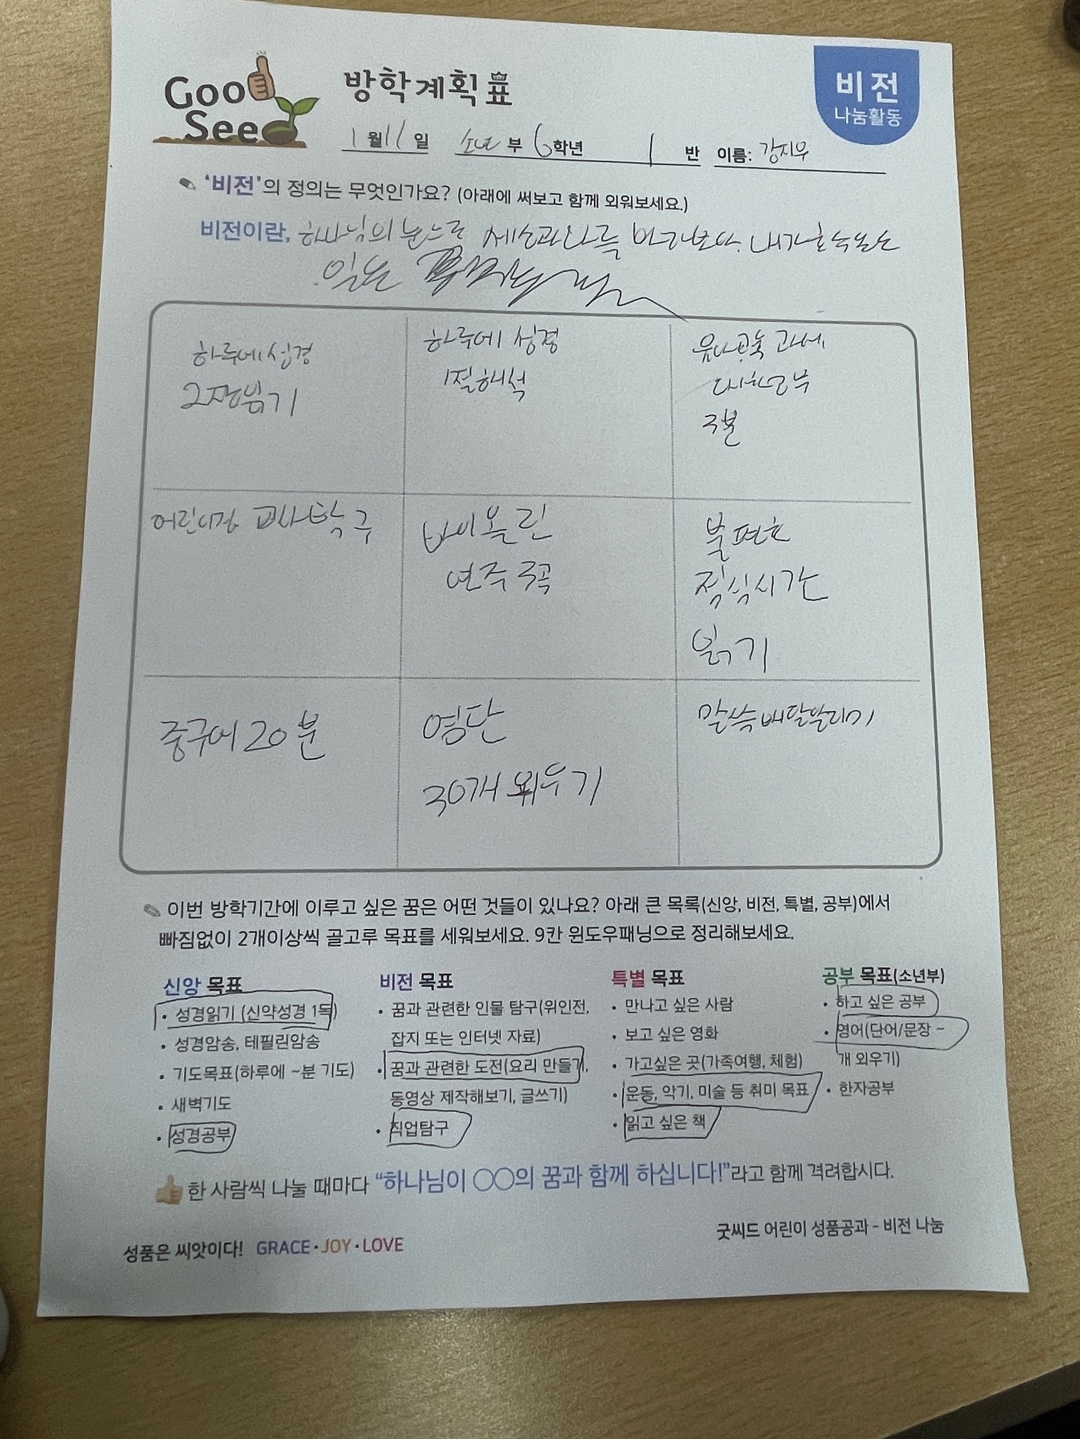 Good Seed
방학계획표
비전
나눔활동
1월 11일 소년부 6학년 1반 이름: 강지우
'비전'의 정의는 무엇인가요? (아래에 써보고 함께 외워보세요.)
비전이란, 하나님의 눈으로 세상과 나를 바라보다. 내가
일은
하루에 성경
2장 읽기
하루에 성경
1절 해석
3분
어린이집 교사 탐구
바이올린
연주 3곡
불편한
직식시간
읽기
중국어 20분
영단
30개 외우기
말씀배달
이번 방학기간에 이루고 싶은 꿈은 어떤 것들이 있나요? 아래 큰 목록(신앙, 비전, 특별, 공부)에서
빠짐없이 2개이상씩 골고루 목표를 세워보세요. 9칸 윈도우패닝으로 정리해보세요.
신앙 목표
• 성경읽기 (신약성경 1독)
• 성경암송, 테필린암송
• 기도목표(하루에 ~분 기도)
• 새벽기도
• 성경공부
비전 목표
• 꿈과 관련한 인물 탐구(위인전,
잡지 또는 인터넷 자료)
• 꿈과 관련한 도전(요리 만들기,
동영상 제작해보기, 글쓰기)
• 직업탐구
특별 목표
• 만나고 싶은 사람
• 보고 싶은 영화
• 가고싶은 곳(가족여행, 체험)
• 운동, 악기, 미술 등 취미 목표
• 읽고 싶은 책
공부 목표(소년부)
• 하고 싶은 공부
• 영어(단어/문장 ~
개 외우기)
• 한자공부
한 사람씩 나눌 때마다 "하나님이 ○○의 꿈과 함께 하십니다!"라고 함께 격려합시다.
성품은 씨앗이다! GRACE・JOY・LOVE
굿씨드 어린이 성품공과 - 비전 나눔